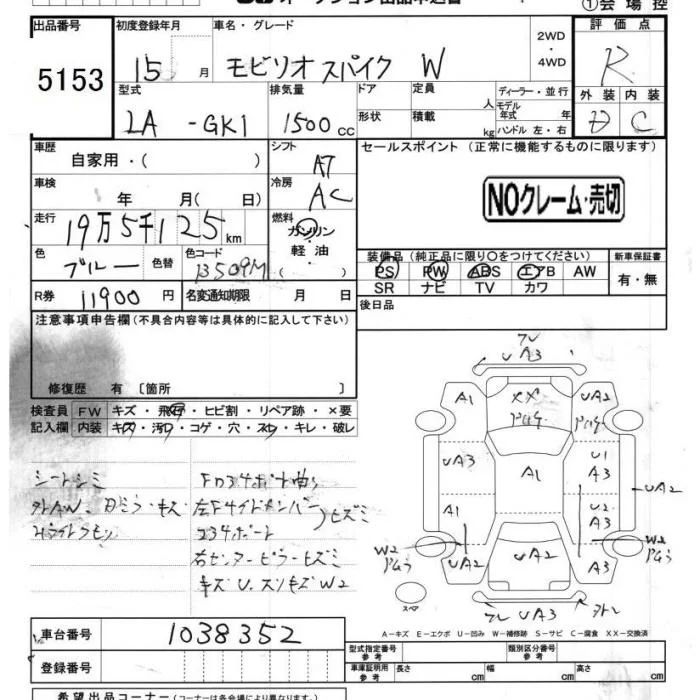 ①会場控
出品番号 初度登録年月 車名・グレード 評価点
5153 15 月 モビリオスパイク W 2WD ・ 4WD R
型式 排気量 ドア 定員 人 ディーラー・並行 外装 内装
LA -GK1 1500 cc 形状 積載 kg モデル年式 年 ハンドル 左・右 D C
車歴 シフト セールスポイント (正常に機能するものに限ります)
自家用・( ) AT
車検 冷房 NOクレーム・売切
年 月( 日) AC
走行 燃料
19万5千125 km ガソリン・軽油
色 色替 色コード ( )
ブルー B509M
装備品(純正品に限り○をつけてください) 新車保証書
PS PW ABS エアB AW 有・無
SR ナビ TV カワ
R券 11900 円 名変通知期限 月 日 後日品
注意事項申告欄(不具合内容等は具体的に記入して下さい)
修復歴 有 〔箇所 〕
検査員 FW キズ・飛石・ヒビ割・リペア跡・×要
記入欄 内装 キズ・汚れ・コゲ・穴・スレ・キレ・破レ
シートシミ
左Fサイドメンバー
右センターピラーヒズミ
UA3
A1 XX UA2
UA3 A1 U1 A3
A1 U2 A3 UA2
W2 UA2 UA2 A3 W2
スペア UA3
A-キズ E-エクボ U-凹み W-補修跡 S-サビ C-腐食 XX-交換済
車台番号 1038352
登録番号
型式指定番号 参考 類別区分番号 参考
車庫証明用 参考 長さ cm 幅 cm 高さ cm
希望出品コーナー(コーナーは各会場により異なります。)